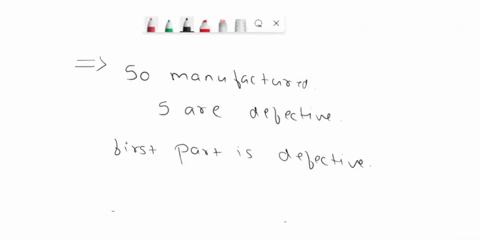 => 50 manufactured.
5 are defective.
first part is defective.